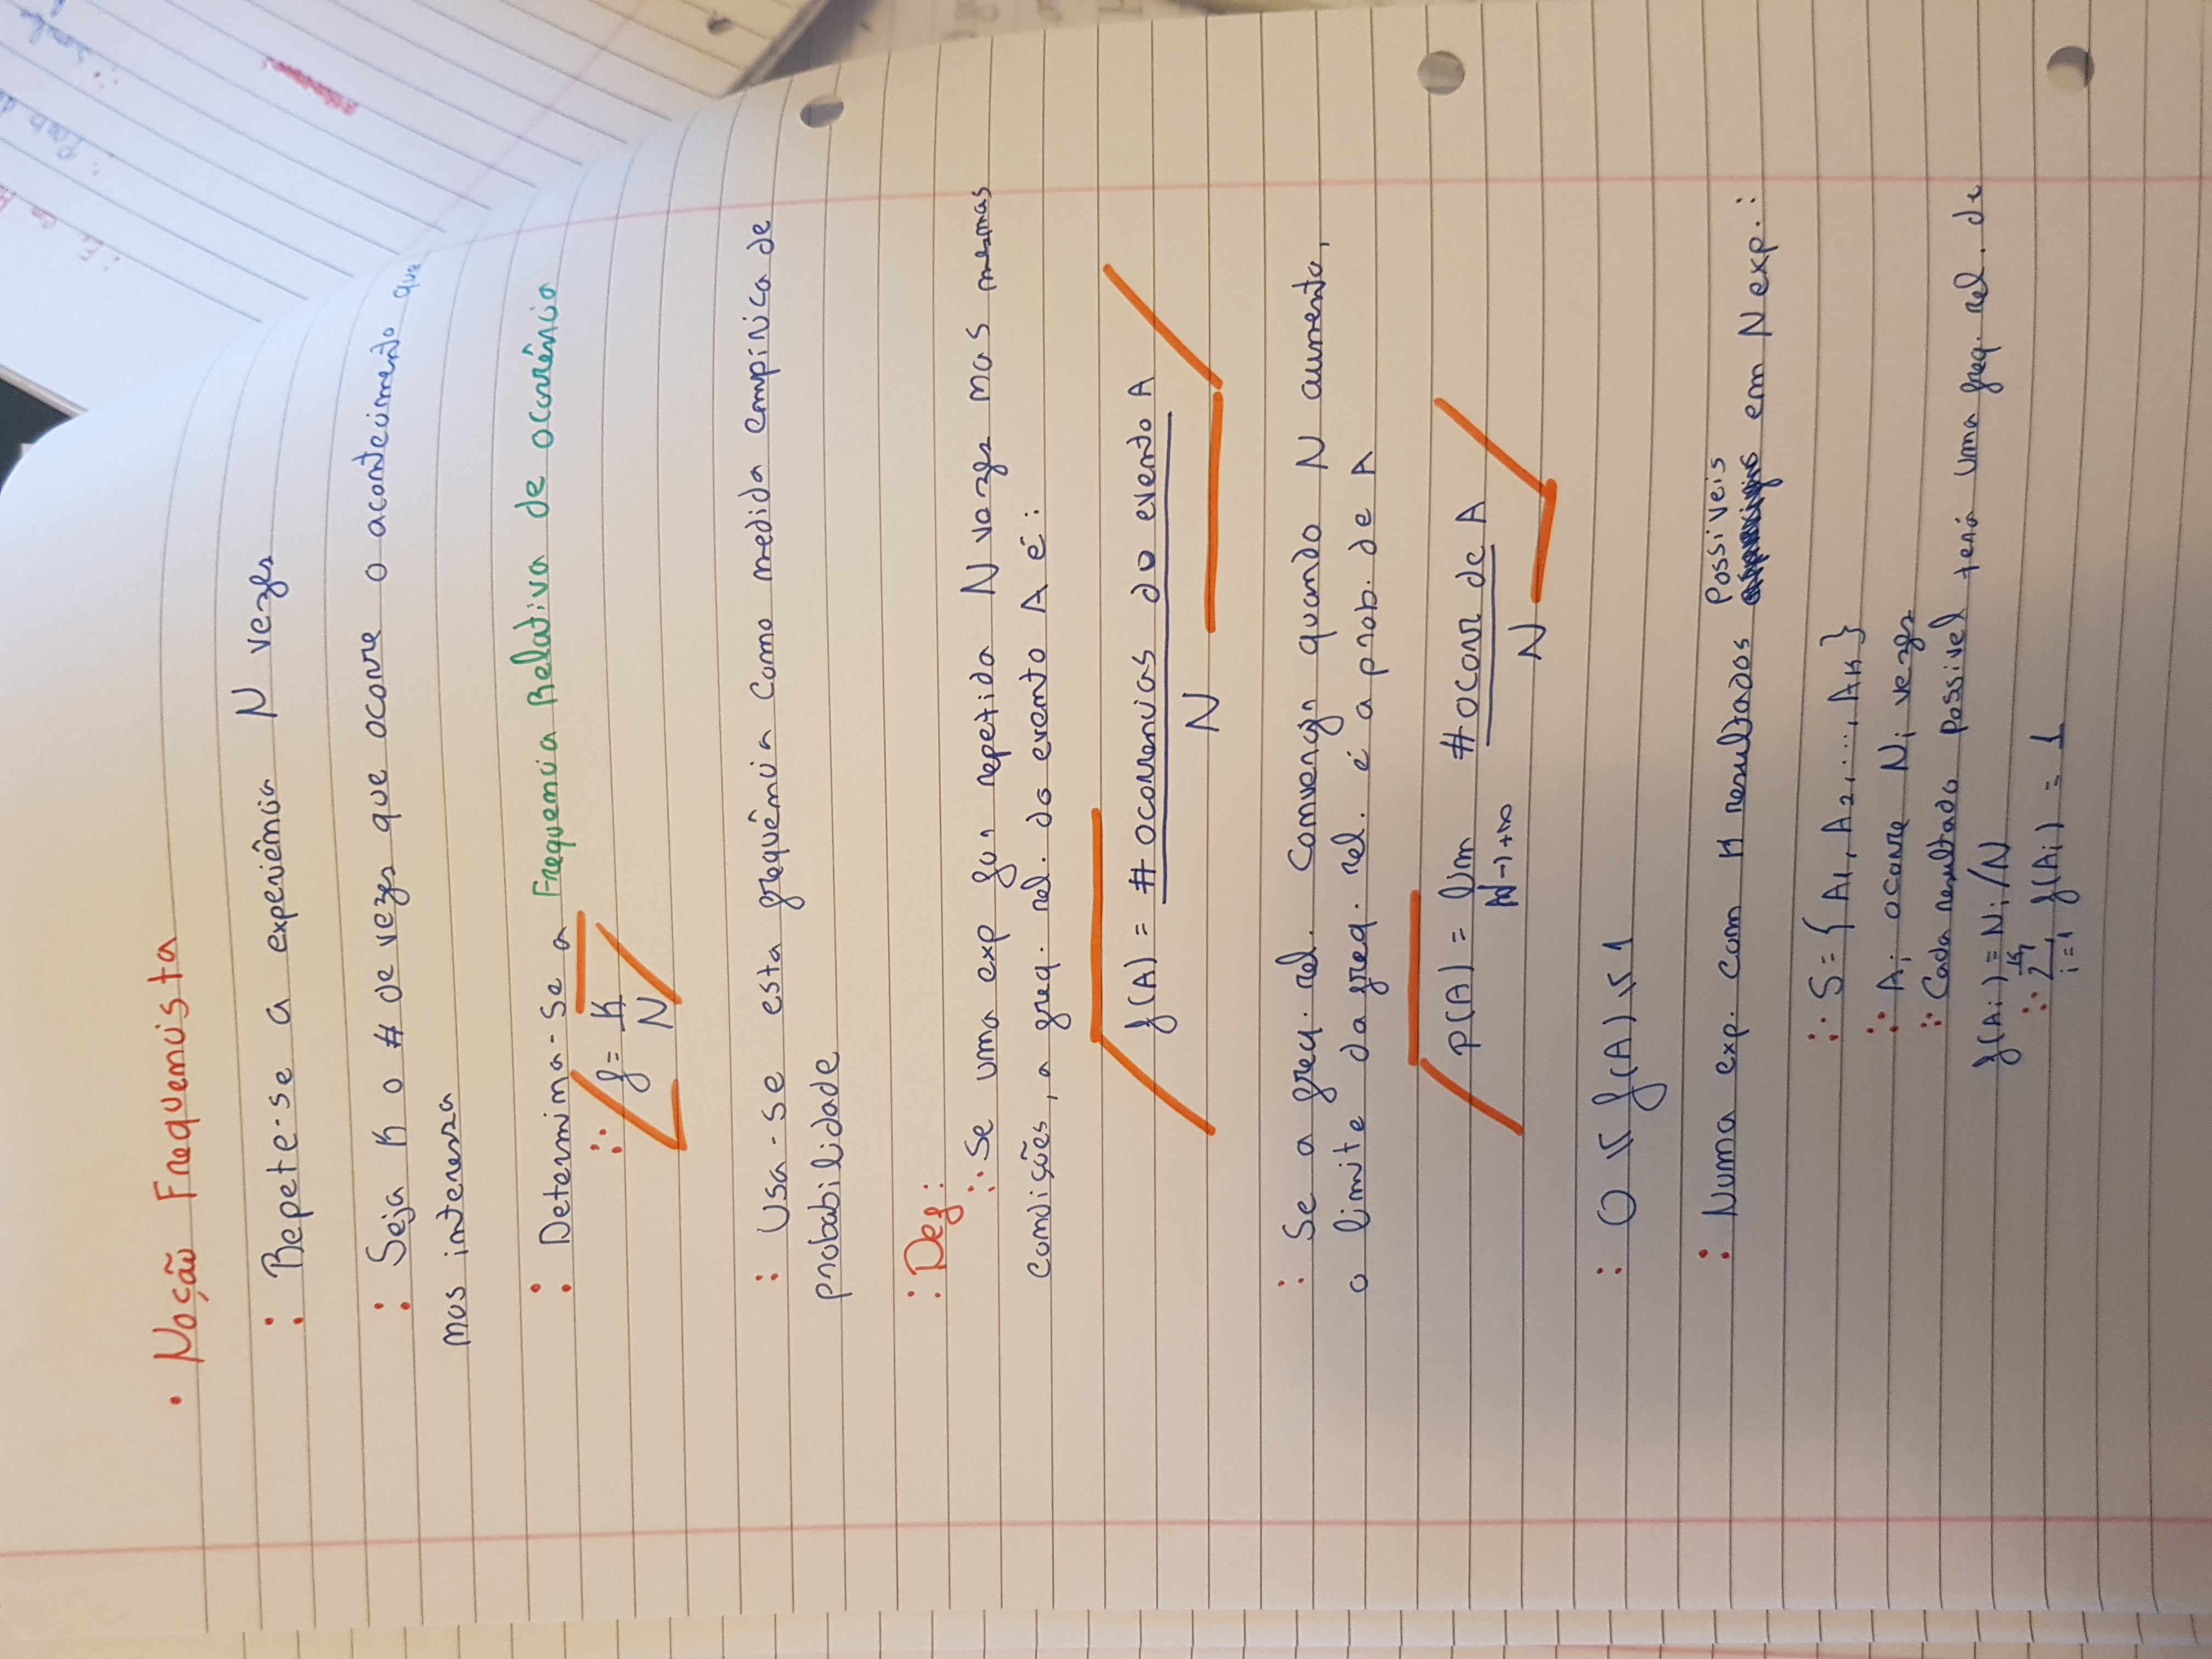 • Noção Frequencista
: Repete-se a experiência N vezes
: Seja K o # de vezes que ocorre o acontecimento que
nos interessa
: Determina-se a Frequencia Relativa de ocorrência
∴ f = K
N
: Usa-se esta frequência como medida empírica de
probabilidade
: Def:
∴ Se uma exp for repetida N vezes nas mesmas
condições, a freq. rel. do evento A é:
f(A) = # ocorrencias do evento A
N
: Se a freq. rel. convergir quando N aumenta,
o limite da freq. rel. é a prob. de A
P(A) = lim #ocorr de A
N→+∞ N
: 0 ≤ f(A) ≤ 1
Possíveis
: Numa exp. com K resultados em N exp. :
∴ S = { A1, A2, ..., AK }
∴ Ai ocorre Ni vezes
∴ Cada resultado possivel terá uma freq. rel. de
f(Ai) = Ni/N
K
∴ Σ f(Ai) = 1
i=1